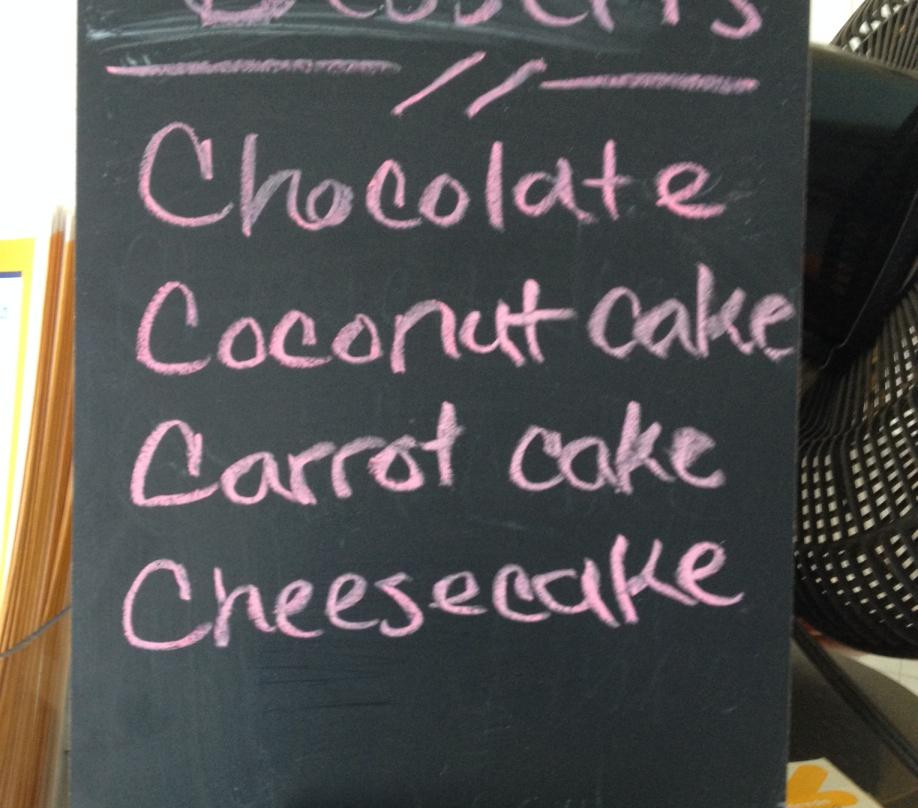 Desserts
Chocolate
Coconut cake
Carrot cake
Cheesecake